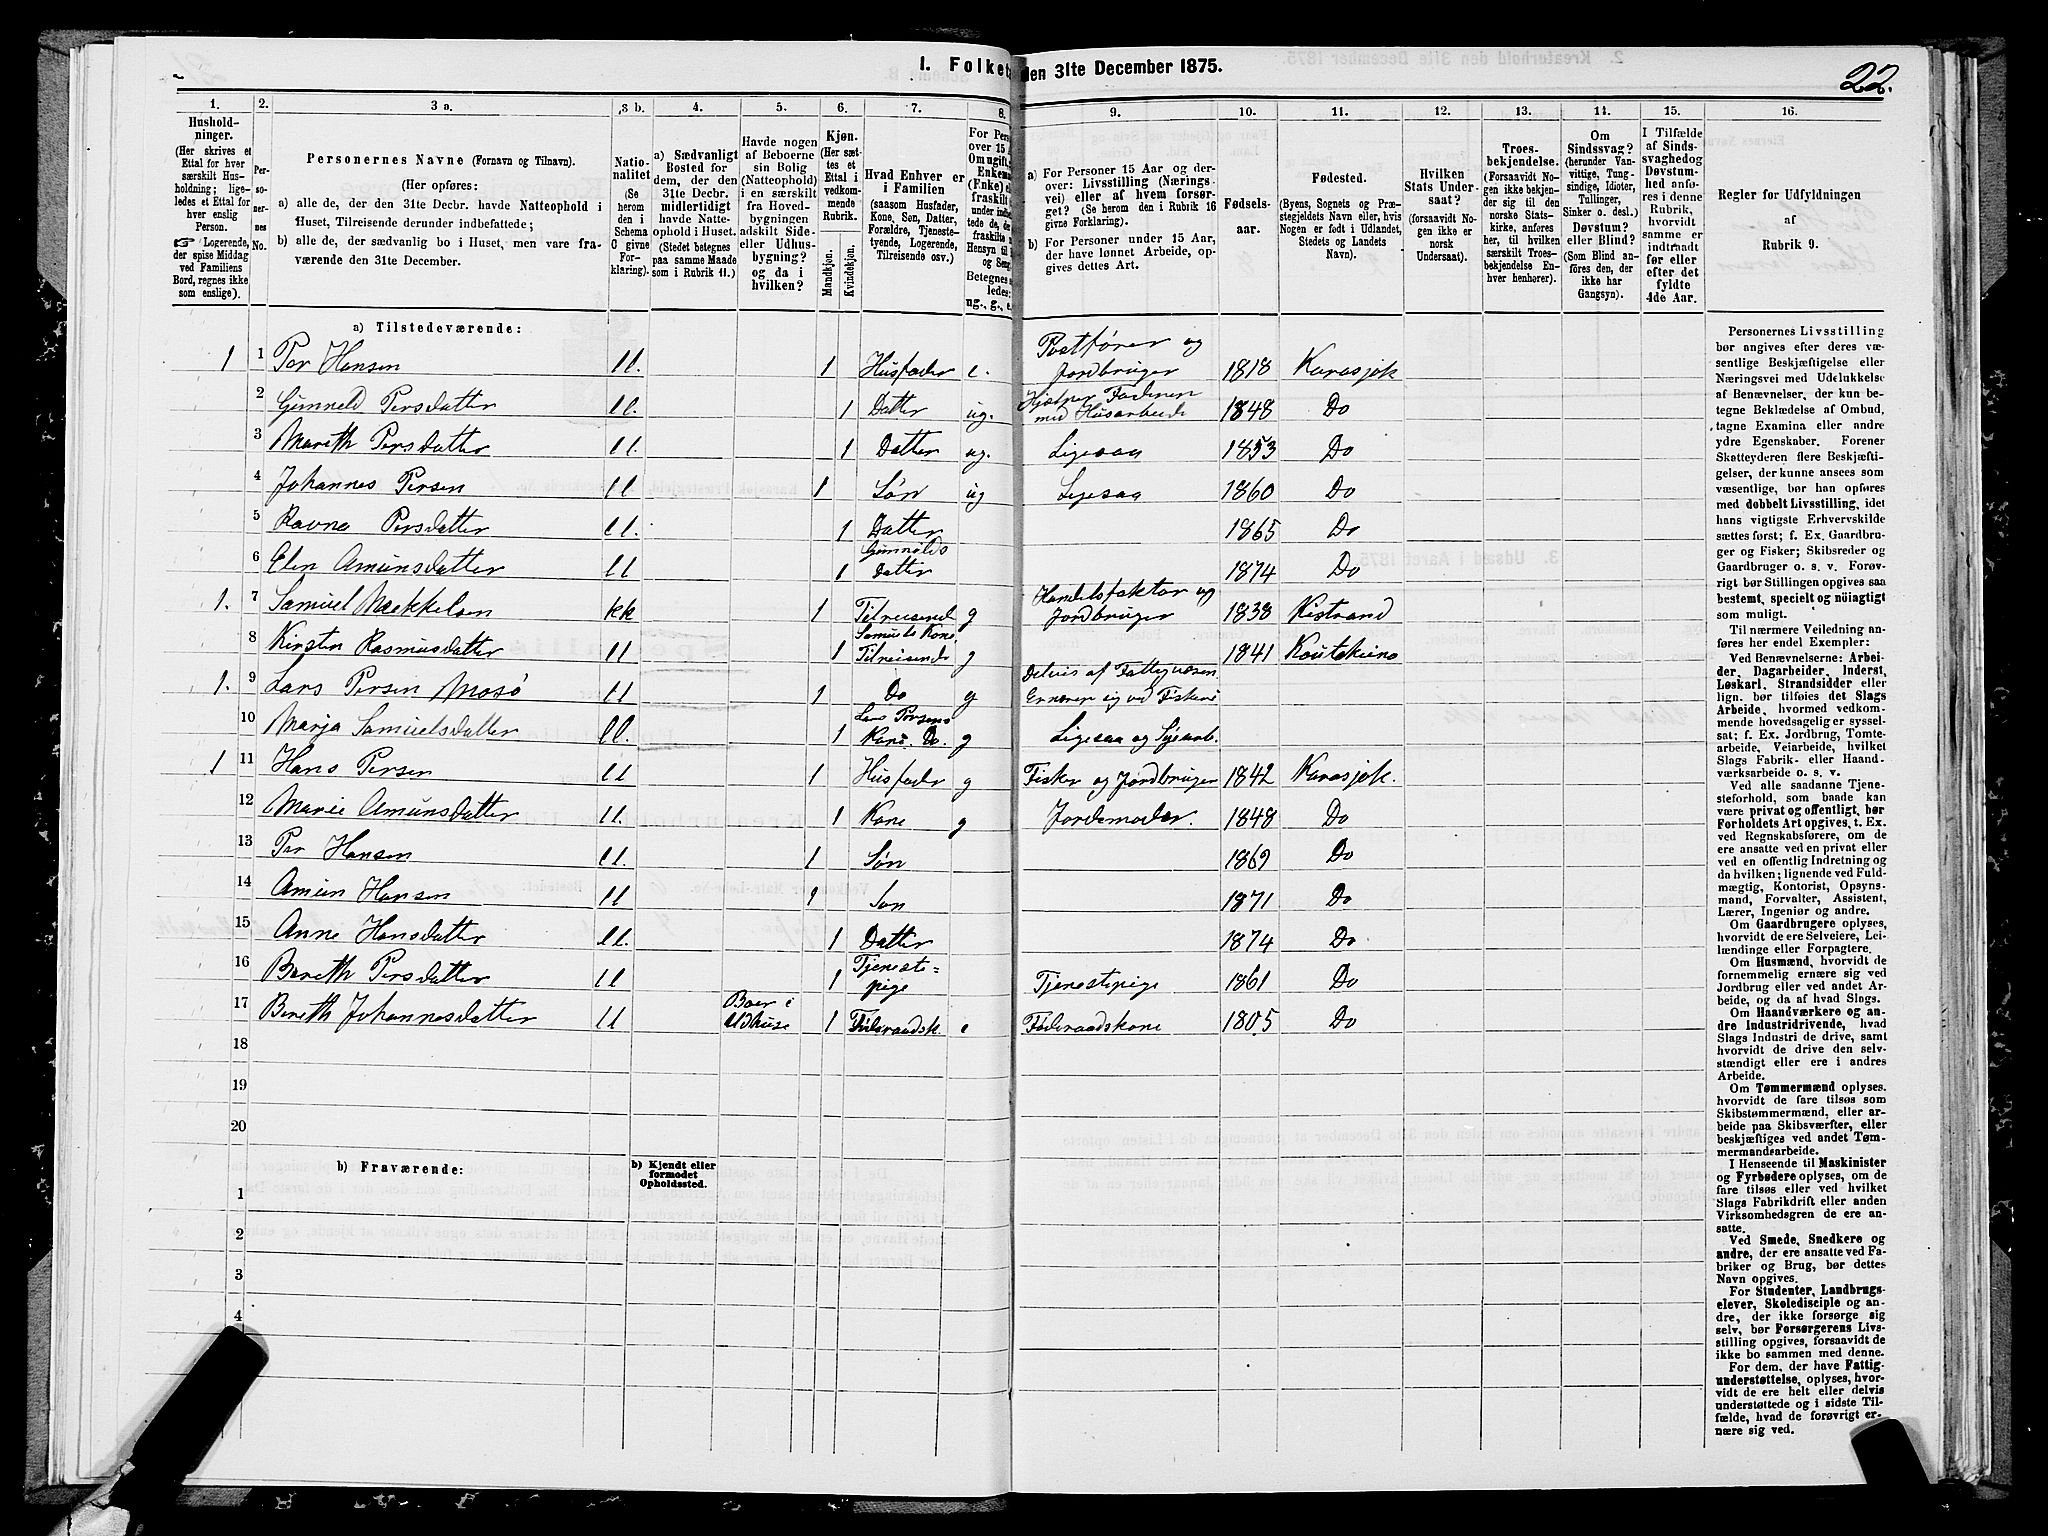 1. Folket
den 31te December 1875.
22.
1. 2. 3 a. 3 b. 4. 5. 6. 7. 8. 9. 10. 11. 12. 13. 14. 15. 16.
Hushold-
ninger.
(Her skrives et
Ettal for hver
særskilt Hus-
holdning; lige-
ledes et Ettal for
hver enslig
Person.
☞ Logerende,
der spise Middag
ved Familiens
Bord, regnes ikke
som enslige).
Per-
so-
ner-
nes
No.
Personernes Navne (Fornavn og Tilnavn).
(Her opføres:
a) alle de, der den 31te Decbr. havde Natteophold i
Huset, Tilreisende derunder indbefattede;
b) alle de, der sædvanlig bo i Huset, men vare fra-
værende den 31te December.
Natio-
nalitet
(Se
herom
den i
Schema
C givne
For-
klaring).
a) Sædvanligt
Bosted for
dem, der den
31te Decbr.
midlertidigt
havde Natte-
ophold i Huset.
(Stedet betegnes
paa samme Maade
som i Rubrik 11.)
Havde nogen
af Beboerne
sin Bolig
(Natteophold)
i en særskilt
fra Hoved-
bygningen
adskilt Side-
eller Udhus-
bygning?
og da i
hvilken?
Kjøn.
(Her sæt-
tes et
Ettal i
vedkom-
mende
Rubrik.
Mandkjøn.
Kvindekjøn.
Hvad Enhver er
i Familien
(saasom Husfader,
Kone, Søn, Datter,
Forældre, Tjeneste-
tyende, Logerende,
Tilreisende osv.)
For Pers
over 15
Om ugift,
Enkem
(Enke) e
fraskilt
under indb
tede de,
fraskilte
Hensyn til
og Seng
Betegnes s
ledes:
ug., g., e.
a) For Personer 15 Aar og der-
over: Livsstilling (Nærings-
vei) eller af hvem forsør-
get? (Se herom den i Rubrik 16
givne Forklaring).
b) For Personer under 15 Aar,
der have lønnet Arbeide, op-
gives dettes Art.
Fødsels-
aar.
Fødested.
(Byens, Sognets og Præ-
stegjeldets Navn eller, hvis
Nogen er født i Udlandet,
Stedets og Landets
Navn).
Hvilken
Stats Under-
saat?
(forsaavidt No-
gen ikke er
norsk
Undersaat).
Troes-
bekjendelse.
(Forsaavidt No-
gen ikke bekjen-
der sig til den
norske Stats-
kirke, anføres
her, til hvilken
særskilt Troes-
bekjendelse En-
hver henhører).
Om
Sindssvag?
(herunder Van-
vittige, Tung-
sindige, Idioter,
Tullinger,
Sinker o. desl.)
Døvstum?
eller Blind?
(Som Blind an-
føres den, der
ikke har
Gangsyn).
I Tilfælde
af Sinds-
svaghedog
Døvstum-
hed anfø-
res i denne
Rubrik,
hvorvidt
samme er
indtraadt
før eller
efter det
fyldte
4de Aar.
Regler for Udfyldningen
af
Rubrik 9.
a) Tilstedeværende:
1 1 Per Hansen ll. 1 Husfader e. Postfører og Jordbruger 1818 Karasjok
2 Gunneld Persdatter ll. 1 Datter ug. Hjælper Faderen med Husarbeide 1848 Do
3 Mareth Persdatter ll. 1 Datter ug. Ligesaa 1853 Do
4 Johannes Persen ll 1 Søn ug Ligesaa 1860 Do
5 Ravna Persdatter ll. 1 Datter 1865 Do
6 Elen Amunsdatter ll 1 Gunnelds Datter 1874 Do
1. 7 Samuel Mækkelsen kk 1 Tilreisende g Handelsfaktor og Jordbruger 1838 Kistrand
8 Kirsten Rasmusdatter ll 1 Samuels Kone, Tilreisende g 1841 Koutokeino
1. 9 Lars Persen Mosø ll 1 Do g Delvis af Fattigvæsen. Ernærer sig ved Fiskeri
10 Marja Samuelsdatter ll. 1 Lars Persens Kone. Do. g Ligesaa og Syearb.
1 11 Hans Persen ll 1 Husfader g Fisker og Jordbruger 1842 Karasjok.
12 Marie Amunsdatter ll. 1 Kone g Jordemoder. 1848 Do
13 Per Hansen ll. 1 Søn 1869 Do
14 Amun Hansen ll 1 Søn 1871 Do
15 Anne Hansdatter ll. 1 Datter 1874 Do
16 Bereth Persdatter ll 1 Tjeneste=pige Tjenestepige 1861 Do
17 Bereth Johannesdatter ll Boer i Udhuse 1 Føderaadsk. e Føderaadskone 1805 Do
18
19
20
b) Fraværende:
b) Kjendt eller
formodet
Opholdssted.
1
2
3
4
Personernes Livsstilling
bør angives efter deres væ-
sentlige Beskjæftigelse eller
Næringsvei med Udelukkelse
af Benævnelser, der kun be-
tegne Beklædelse af Ombud,
tagne Examina eller andre
ydre Egenskaber. Forener
Skatteyderen flere Beskjæfti-
gelser, der kunne ansees som
væsentlige, bør han opføres
med dobbelt Livsstilling, idet
hans vigtigste Erhvervskilde
sættes først; f. Ex. Gaardbru-
ger og Fisker; Skibsreder og
Gaardbruger o. s. v. Forøv-
rigt bør Stillingen opgives saa
bestemt, specielt og nøiagtigt
som muligt.
Til nærmere Veiledning an-
føres her endel Exempler:
Ved Benævnelserne: Arbei-
der, Dagarbeider, Inderst,
Løskarl, Strandsidder eller
lign. bør tilføies det Slags
Arbeide, hvormed vedkom-
mende hovedsagelig er syssel-
sat; f. Ex. Jordbrug, Tomte-
arbeide, Veiarbeide, hvilket
Slags Fabrik- eller Haand-
værksarbeide o. s. v.
Ved alle saadanne Tjene-
steforhold, som baade kan
være privat og offentligt, bør
Forholdets Art opgives, t. Ex.
ved Regnskabsførere, om de
ere ansatte ved en privat eller
ved en offentlig Indretning og
da hvilken; lignende ved Fuld-
mægtig, Kontorist, Opsyns-
mand, Forvalter, Assistent,
Lærer, Ingeniør og andre.
Om Gaardbrugere oplyses,
hvorvidt de ere Selveiere, Lei-
lændinge eller Forpagtere.
Om Husmænd, hvorvidt de
fornemmelig ernære sig ved
Jordbrug eller ved andet Ar-
beide, og da af hvad Slags.
Om Haandværkere og an-
dre Industridrivende, hvad
Slags Industri de drive, samt
hvorvidt de drive den selv-
stændigt eller ere i andres
Arbeide.
Om Tømmermænd oplyses.
hvorvidt de fare tilsøs som
Skibstømmermænd, eller ar-
beide paa Skibsværfter, eller
beskjæftiges ved andet Tøm-
mermandsarbeide.
I Henseende til Maskinister
og Fyrbødere oplyses, om de
fare tilsøs eller ved hvilket
Slags Fabrikdrift eller anden
Virksomhedsgren de ere an-
satte.
Ved Smede, Snedkere og
andre, der ere ansatte ved Fa-
briker og Brug, bør dettes
Navn opgives.
For Studenter, Landbrugs-
elever, Skoledisciple og an-
dre, der ikke forsørge sig
selv, bør Forsørgerens Livs-
stilling opgives, forsaavidt de
ikke bo sammen med denne.
For dem, der have Fattig-
understøttelse, oplyses, hvor-
vidt de ere helt eller delvis
understøttede og i sidste Til-
fælde, hvad de forøvrigt er-
nære sig ved.